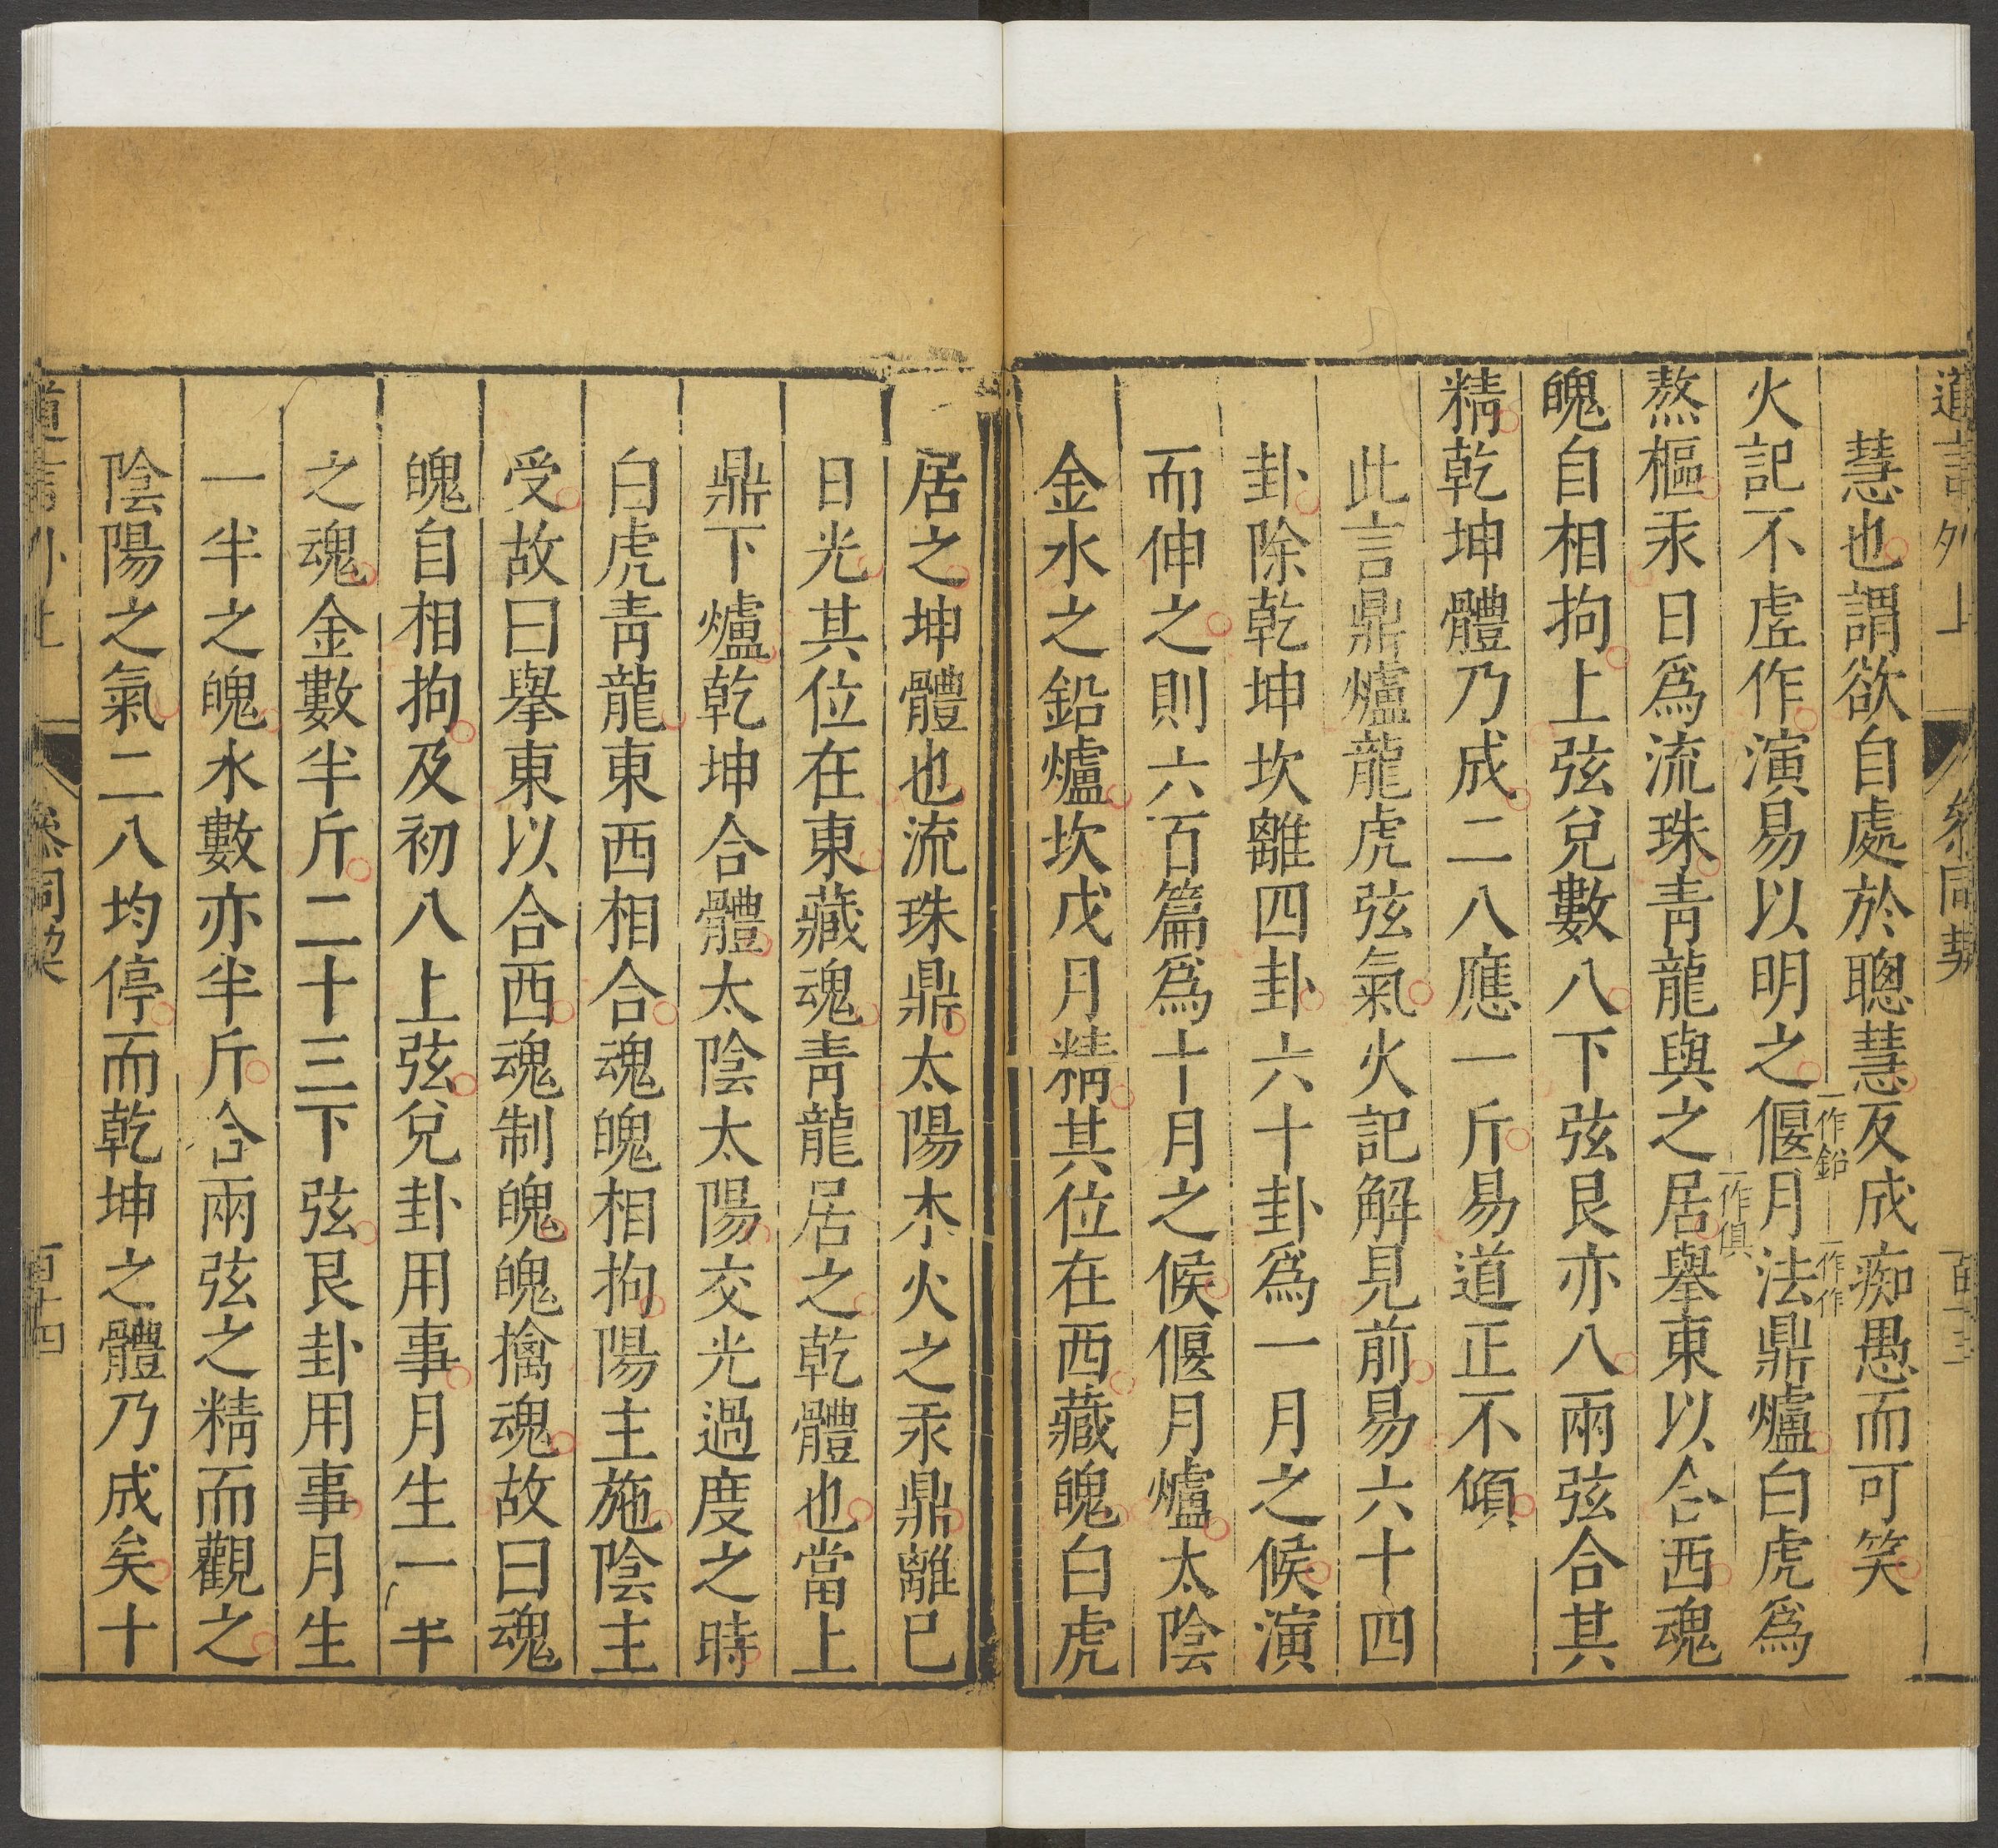 道言外 上 參同契 百十三
慧也謂欲自處於聰慧反成痴愚而可笑
一作鉛 一作作
火記不虗作演易以明之偃月法鼎爐白虎爲
一作俱
熬樞汞日爲流珠青龍與之居舉東以合西魂
魄自相拘上弦兌數八下弦艮亦八兩弦合其
精乾坤體乃成二八應一斤易道正不傾
此言鼎爐龍虎弦氣火記解見前易六十四
卦除乾坤坎離四卦六十卦爲一月之候演
而伸之則六百篇爲十月之候偃月爐太陰
金水之鉛爐坎戊月精其位在西藏魄白虎
居之坤體也流珠鼎太陽木火之汞鼎離巳
日光其位在東藏魂青龍居之乾體也當上
鼎下爐乾坤合體太陰太陽交光過度之時
白虎青龍東西相合魂魄相拘陽主施陰主
受故曰舉東以合西魂制魄魄擒魂故曰魂
魄自相拘及初八上弦兌卦用事月生一半
之魂金數半斤二十三下弦艮卦用事月生
一半之魄水數亦半斤合兩弦之精而觀之
陰陽之氣二八均停而乾坤之體乃成矣十
道言外 上 參同契 百十四